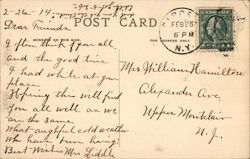 2-26-14.
POST CARD
FEB 26
6 PM
N.Y.
Dear Friends
I often think of you all
and the good time
I had while at your
place.
Hoping this will find
you all well as we
are the same.
What awful cold weather
we have been having.
Best Wishes Mrs. Liddle
Mrs William Hamilton
Alexander Ave,
Upper Montclair
N. J.